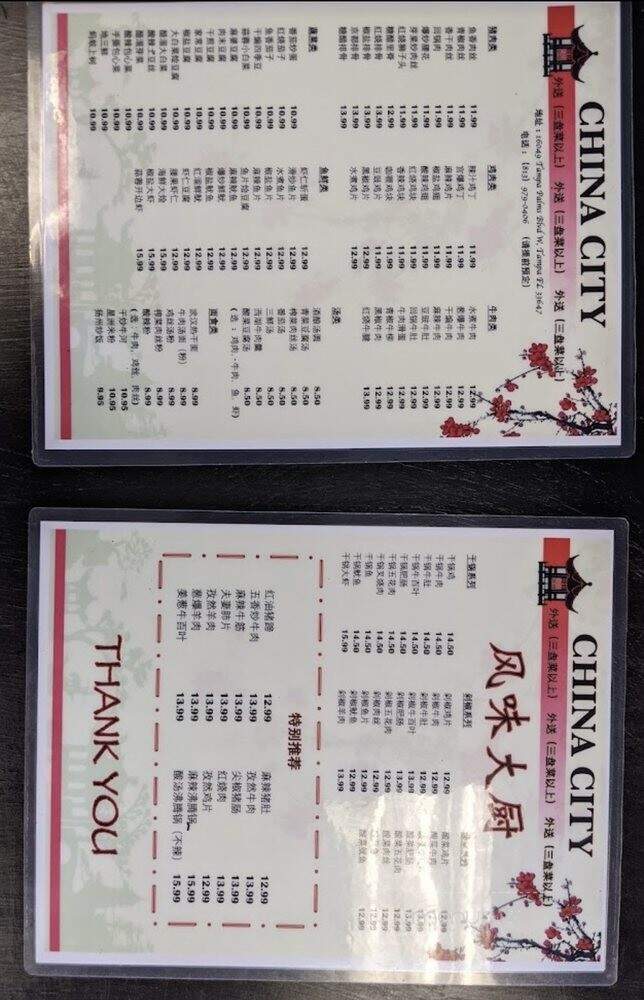 CHINA CITY
外送（三盘菜以上） 外送（三盘菜以上） 外送（三盘菜以上）
地址：16049 Tampa Palms Blvd W, Tampa FL 33647
电话：(813) 979-0406 （请提前预定）
猪肉类
鱼香肉丝 11.99
青椒肉丝 11.99
香干肉丝 11.99
回锅肉 11.99
芽菜炒肉丝 11.99
爆炒腰花 11.99
红烧狮子头 11.99
糖醋里脊 12.99
红烧排骨 13.99
椒盐排骨 13.99
京都排骨 13.99
糖醋排骨 13.99
蔬菜类
番茄炒蛋 10.99
红烧茄子 10.99
鱼香茄子 10.99
干煸四季豆 10.99
蒜蓉小白菜 10.99
麻婆豆腐 10.99
肉末豆腐 10.99
家常豆腐 10.99
干煎豆腐 10.99
椒盐豆腐 10.99
大白菜烩豆腐 10.99
醋溜大白菜 10.99
酸辣土豆丝 10.99
醋溜芽菜 10.99
酸辣包心菜 10.99
手撕包心菜 10.99
地三鲜 10.99
蚂蚁上树 10.99
鸡肉类
辣汁鸡丁 11.99
宫爆鸡丁 11.99
麻辣鸡片 11.99
椒盐鸡翅 11.99
酸辣鸡翅 11.99
红烧鸡块 11.99
香辣鸡块 11.99
咖喱鸡块 11.99
豆豉鸡片 11.99
黑椒鸡片 12.99
水煮鸡片 12.99
鱼鲜类
虾仁炒蛋 12.99
滑炒鱼片 12.99
水煮鱼片 12.99
椒盐鱼片 12.99
麻辣鱼片 12.99
鱼片烩豆腐 12.99
麻辣鱿鱼 12.99
爆炒鲜鱿 12.99
椒盐鱿鱼 12.99
红溜鲜鱿 12.99
虾仁豆腐 12.99
腰果虾仁 12.99
海鲜大烩 15.99
椒盐大虾 15.99
蒜蓉开边虾 15.99
牛肉类
水煮牛肉 12.99
葱爆牛肉 12.99
干煸牛肉 12.99
麻辣牛肉 12.99
豆豉牛肚 12.99
回锅牛肚 12.99
牛肉滑蛋 12.99
青椒牛柳 12.99
黑椒牛肉 12.99
红烧牛腱 13.99
汤类
酒酿汤圆 8.50
青菜豆腐汤 8.50
榨菜肉丝汤 8.50
番茄汤 8.50
三鲜汤 8.50
西湖牛肉羹 8.50
酸菜豆腐汤 8.50
（选：鸡肉，牛肉，鱼，虾）
面食类
武汉热干面 8.99
牛肉汤面（粉） 8.99
鸡丝汤粉 8.99
榨菜肉丝粉 8.99
酸辣粉 8.99
（选：牛肉，鸡丝，肉丝）
干炒牛河 10.95
星洲米粉 10.95
扬州炒饭 9.95
CHINA CITY
外送（三盘菜以上） 外送（三盘菜以上） 外送（三盘菜以上）
风味大厨
干锅系列
干锅鸡 14.50
干锅牛肉 14.50
干锅牛肚 14.50
干锅牛百叶 14.50
干锅肥肠 14.50
干锅五花肉 14.50
干锅叉烧肉 14.50
干锅鱼 14.50
干锅鱿鱼 14.50
干锅大虾 15.99
剁椒系列
剁椒鸡片 12.99
剁椒牛肉 12.99
剁椒牛肚 12.99
剁椒牛百叶 12.99
剁椒肥肠 13.99
剁椒五花肉 12.99
剁椒肉丝 12.99
剁椒鱼片 12.99
剁椒鱿鱼 12.99
剁椒羊肉 13.99
酸菜鸡片 12.99
酸菜牛肉
酸菜肥肠 13.99
酸菜五花肉 12.99
酸菜肉丝 12.99
12.99
酸菜鱿鱼 12.99
特别推荐
红油猪蹄 12.99
五香炒牛肉 13.99
麻辣牛筋 13.99
夫妻肺片 13.99
孜然羊肉 13.99
葱爆羊肉 13.99
姜葱牛百叶 13.99
麻辣猪肚 12.99
孜然牛肉 13.99
尖椒猪肠 13.99
红烧肉 13.99
孜然鸡片 12.99
麻辣沸腾锅 15.99
酸汤沸腾锅（不辣） 15.99
THANK YOU